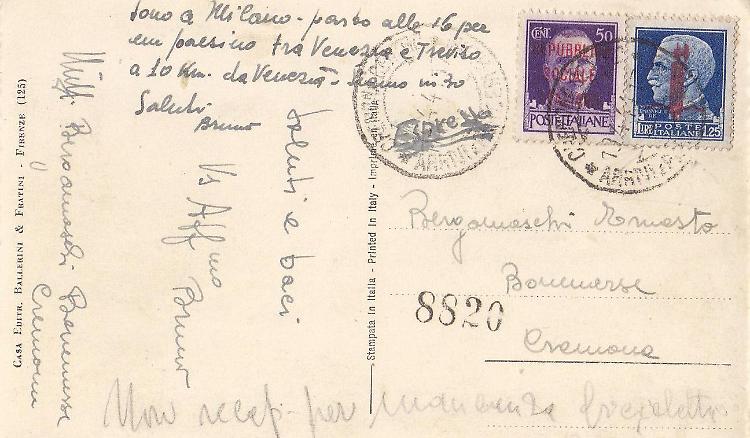 Sono a Milano - parto alle 16 per
un paesino tra Venezia e Treviso
a 10 Km. da Venezia - siamo in 30
Saluti
Bruno
saluti e baci
Vs Aff mo
Bruno
Bergamaschi Bonemerse
Cremona
CASA EDITR. BALLERINI & FRATINI - FIRENZE (125)
Stampata in Italia - Printed in Italy - Imprimé en Italie
Espresso
CENT. 50
REPUBBLICA
SOCIALE
POSTE ITALIANE
LIRE 1,25
POSTE
ITALIANE
Bergamaschi Ernesto
Bonemerse
8820
Cremona
Non recap. per mancanza